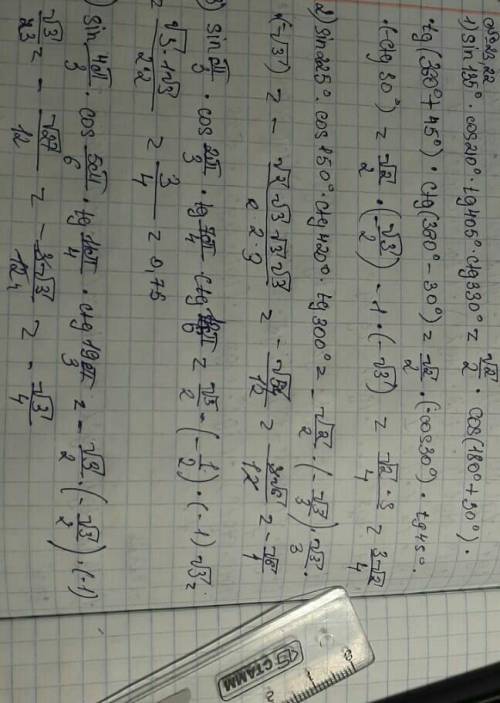 1) sin 135° · cos 210° · tg 405° · ctg 330° = √2/2 · cos(180° + 30°) ·
· tg(360° + 45°) · ctg(360° - 30°) = √2/2 · (-cos 30°) · tg 45° ·
· (-ctg 30°) = √2/2 · (-√3/2) · 1 · (-√3) = √2·3/4 = 3√2/4
2) sin 225° · cos 150° · ctg 420° · tg 300° = -√2/2 · (-√3/2) · √3/3 ·
· (-√3) = - √2·√3·√3·√3/2·2·3 = - = - = -
3) sin π/3 · cos 2π/3 · tg 7π/4 · ctg = √3/2 · (-1/2) · (-1) · √3 =
= √3·1·√3/2·2 = 3/4 = 0,75
) sin 4π/3 · cos 5π/6 · tg π/4 · ctg 19π/3 = -√3/2 · (-√3/2) · (-1)
√3/3 = - √27/12 = - 3√3/12 = - √3/4
СТАММ
0
1
2